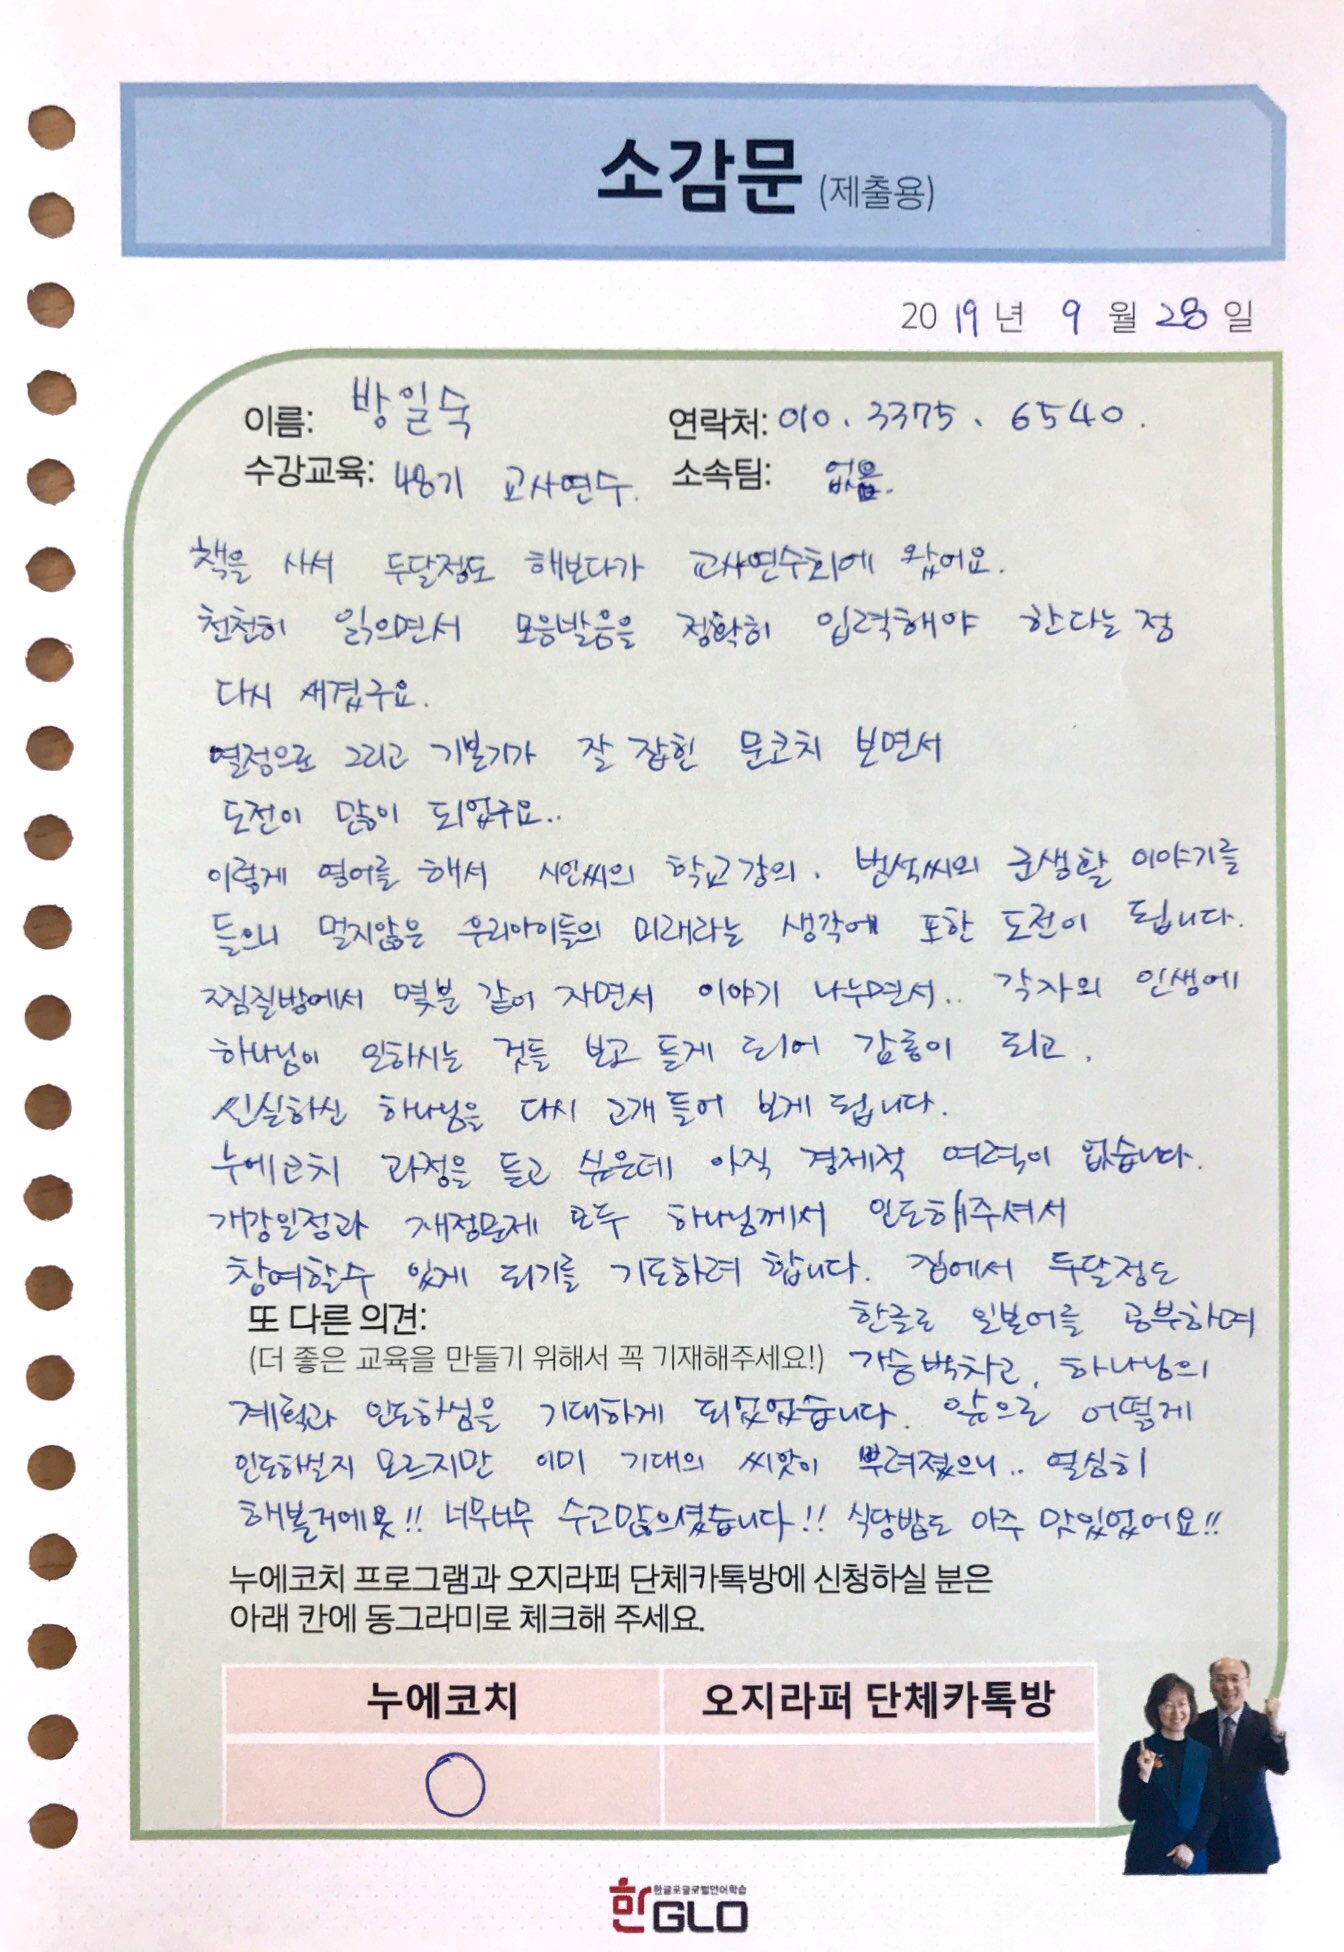 소감문 (제출용)
2019년 9월 28일
이름: 방일숙 연락처: 010. 3375. 6540.
수강교육: 48기 교사연수. 소속팀: 없음.
책을 사서 두달정도 해보다가 교사연수회에 왔어요.
천천히 읽으면서 모음발음을 정확히 입력해야 한다는 점
다시 새겼구요.
열정으로 그리고 기본기가 잘 잡힌 문코치 보면서
도전이 많이 되었구요..
이렇게 영어를 해서 시인씨의 학교강의. 범석씨의 군생활 이야기를
들으니 멀지않은 우리아이들의 미래라는 생각에 또한 도전이 됩니다.
찜질방에서 몇분 같이 자면서 이야기 나누면서.. 각자의 인생에
하나님이 일하시는 것들 보고 듣게 되어 감동이 되고,
신실하신 하나님을 다시 고개들어 보게 됩니다.
누에코치 과정을 듣고 싶은데 아직 경제적 여력이 없습니다.
개강일정과 재정문제 모두 하나님께서 인도해주셔서
참여할수 있게 되기를 기도하려 합니다. 집에서 두달정도
또 다른 의견: 한글로 일본어를 공부하며
(더 좋은 교육을 만들기 위해서 꼭 기재해주세요!) 가슴벅차고, 하나님의
계획과 인도하심을 기대하게 되었었습니다. 앞으로 어떻게
인도하실지 모르지만 이미 기대의 씨앗이 뿌려졌으니.. 열심히
해볼거에욧!! 너무너무 수고많으셨습니다!! 식당밥도 아주 맛있었어요!!
누에코치 프로그램과 오지라퍼 단체카톡방에 신청하실 분은
아래 칸에 동그라미로 체크해 주세요.
누에코치 오지라퍼 단체카톡방
한글로글로벌언어학습
한GLO